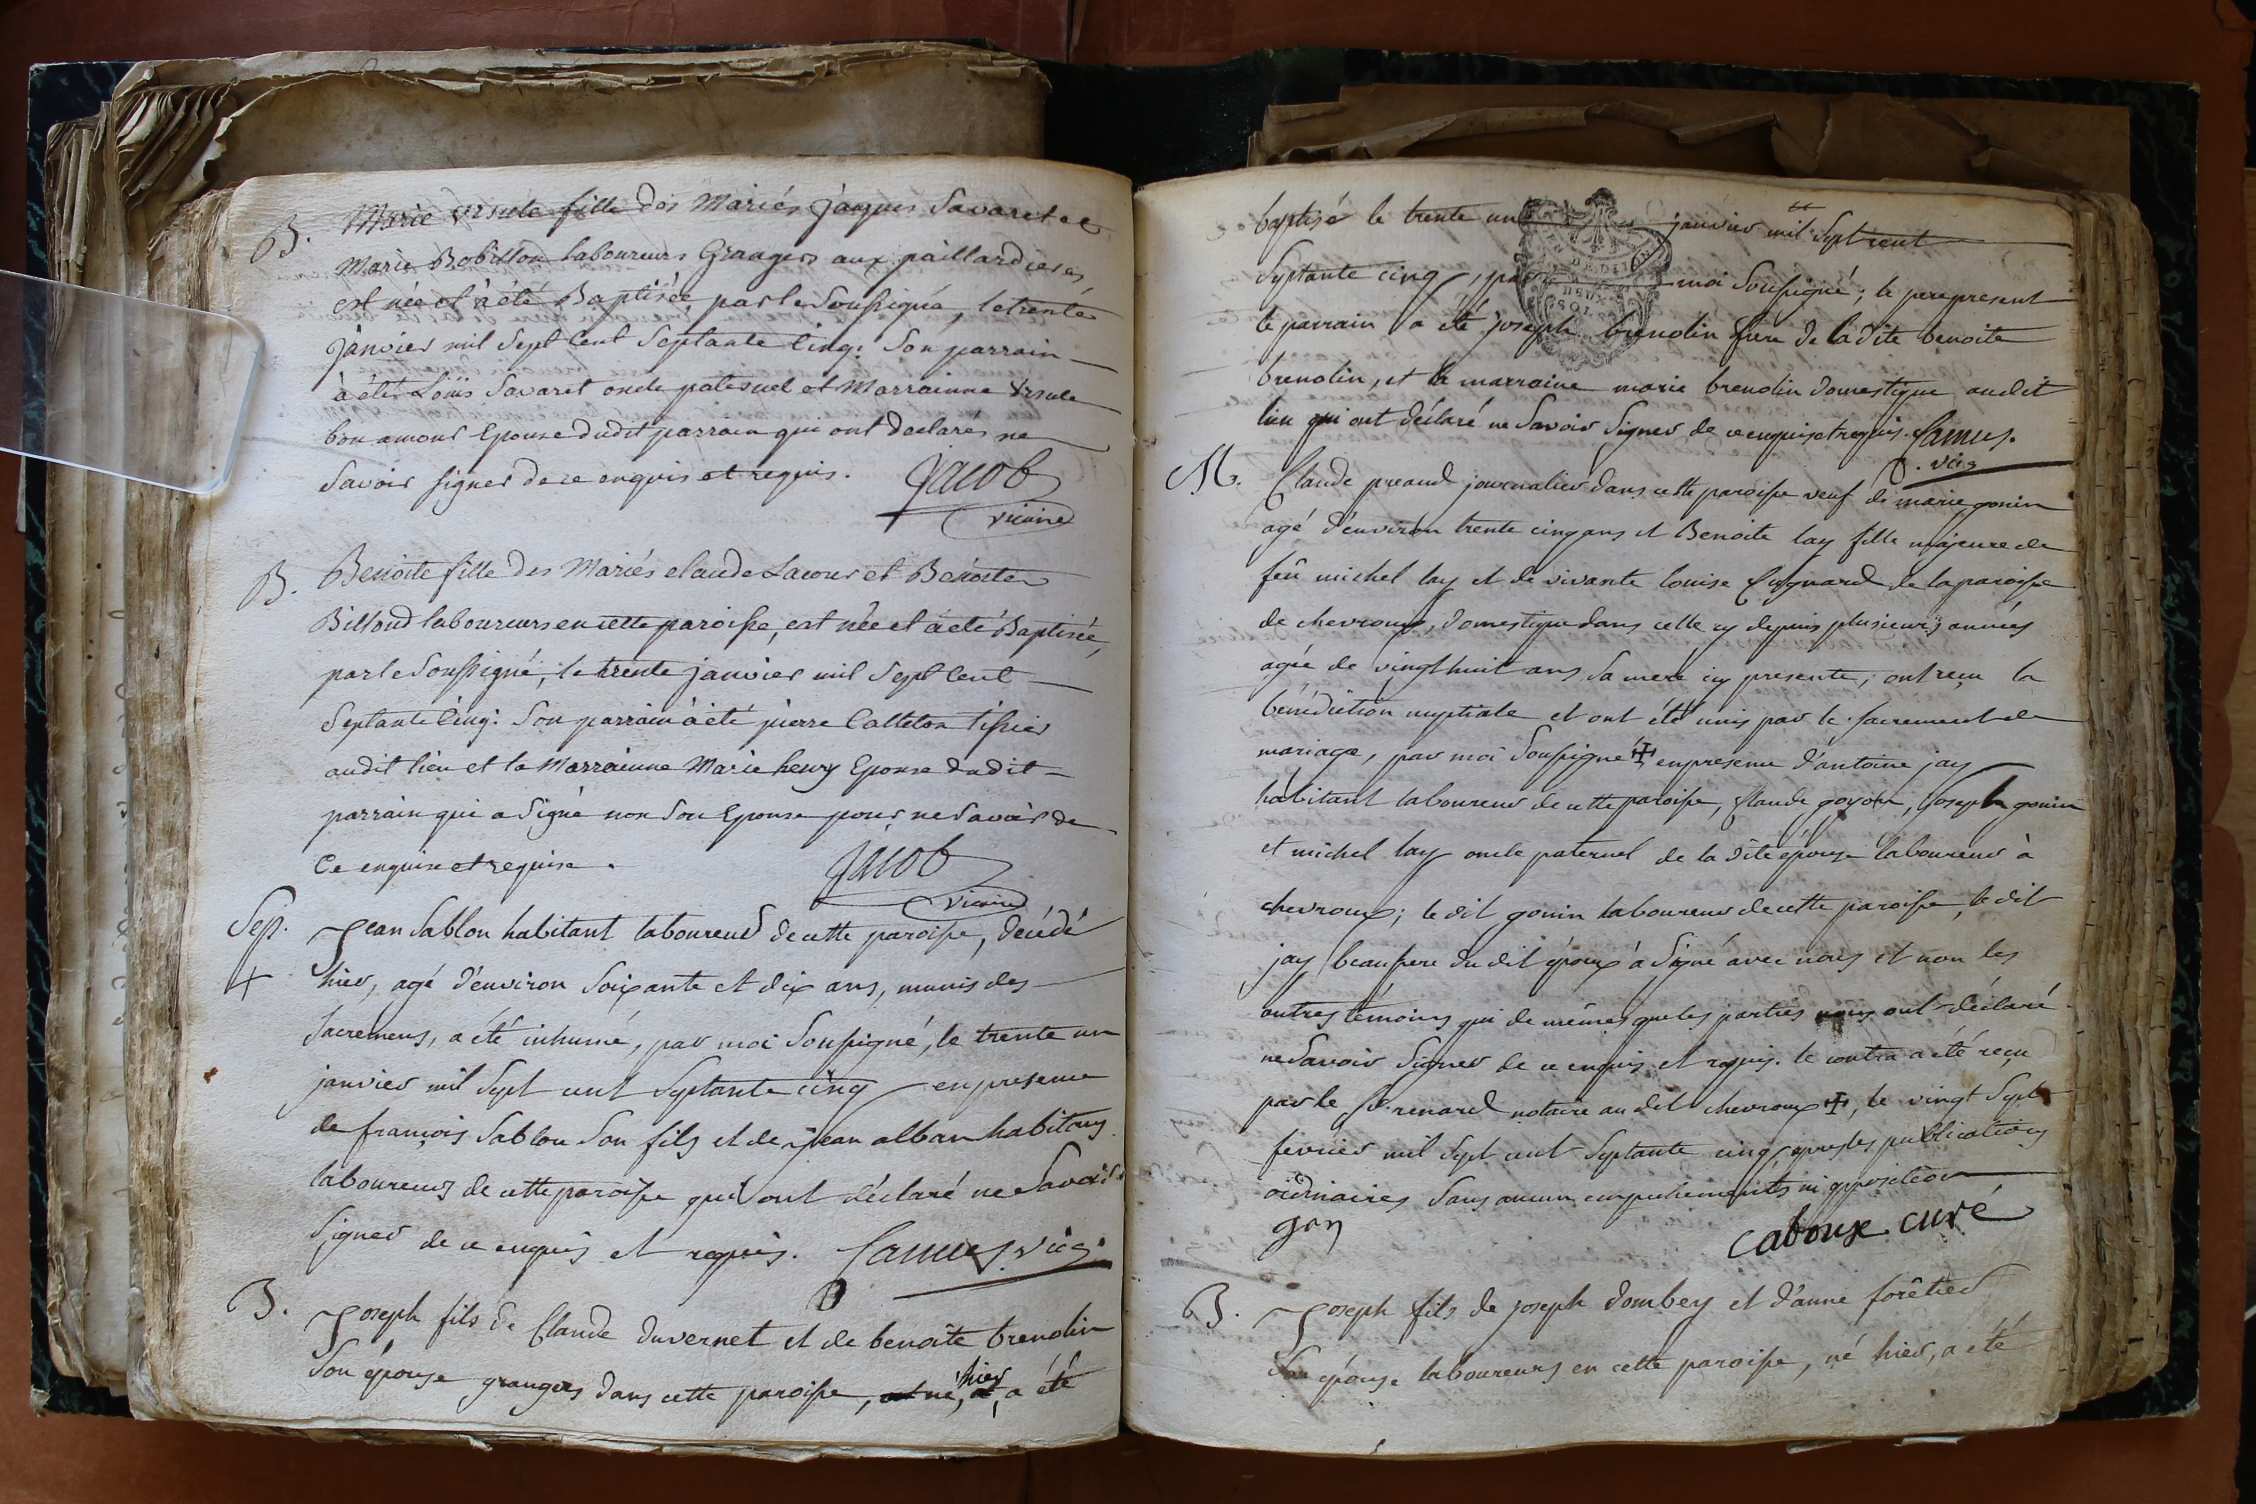 B. Marie Ursule fille des Mariés jâques Savaret et
Marie Bobillon laboureurs Grangers aux paillardieres
est née et à été Baptisée par le Soussigné, le trente
janvier mil Sept Cent Septante Cinq. Son parrain
à été Loüis Savaret oncle paternel et Marrainne Ursule
bon amour Epouse dudit parrain qui ont declarés ne
Savoir signer de ce enquis et requis. Jacob
vicaire
B. Benoite fille des Mariés claude Lacour et Benoite
Billoud laboureurs en cette paroisse, est née et à été Baptisée,
par le Soussigné, le trente janvier mil Sept Cent
Septante Cinq. Son parrain à été pierre Catteton tissier
audit lieu et la Marrainne Marie henry Epouse dudit
parrain qui a Signé non Son Epouse pour ne Savoir de
Ce enquise et requise. Jacob
vicaire
Sep. Jean Sablon habitant laboureur de cette paroisse, décédé
+ hier, agé d'environ Soixante et dix ans, munis des
Sacremens, a été inhumé, par moi Soussigné, le trente un
janvier mil Sept cent Septante cinq en presence
de françois Sablon Son fils et de jean alban habitans
laboureurs de cette paroisse qui ont déclaré ne Savoir
Signer de ce enquis et requis. Camus. vic.
B. Joseph fils de Claude duvernet et de benoîte brenolin
hier
Son épouse grangers dans cette paroisse, né, a été
baptisé le trente un janvier mil Sept cent
Septante cinq, par moi Soussigné; le pere present
le parrain a été joseph brenolin frere de la dite benoite
brenolin, et la marraine marie brenolin domestique audit
lieu qui ont déclaré ne Savoir Signer de ce enquis et requis. Camus.
vic.
M. Claude preaud journalier dans cette paroisse veuf de marie gonin
agé d'environ trente cinq ans et Benoite lay fille majeure de
feû michel lay et de vivante louise Cugnard de la paroisse
de chevroux, domestique dans cette cy depuis plusieurs années
agée de vingt huit ans Sa mere icy presente, ont reçu la
bénédiction nuptiale et ont été unis par le Sacrement de
mariage, par moi Soussigné ✠ en presence d'antoine jay
habitant laboureur de cette paroisse, Claude goyon, joseph gonin
et michel lay oncle paternel de la dite épouse laboureur à
chevroux; le dit gonin laboureur de cette paroisse, le dit
jay beaupere du dit époux a Signé avec nous et non les
autres témoins qui de mêmes que les parties nous ont déclaré
ne Savoir Signer de ce enquis et requis. le contra a été reçu
par le Sr. renard notaire au dit chevroux ✠, le vingt Sept
février mil Sept cent Septante cinq après les publications
ordinaires Sans aucun empechements ni opposition
gay caboux curé
B. Joseph fils de joseph dombey et d'anne forêtier
Son épouse laboureurs en cette paroisse, né hier, a été